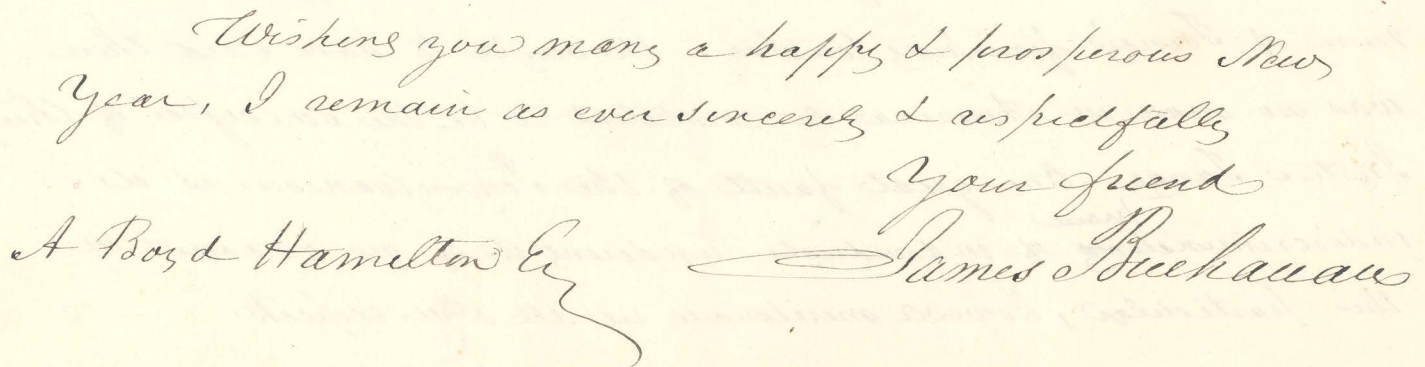 Wishing you many a happy & prosperous New
Year, I remain as ever sincerely & respectfully
Your friend
A Boyd Hamilton Esq James Buchanan